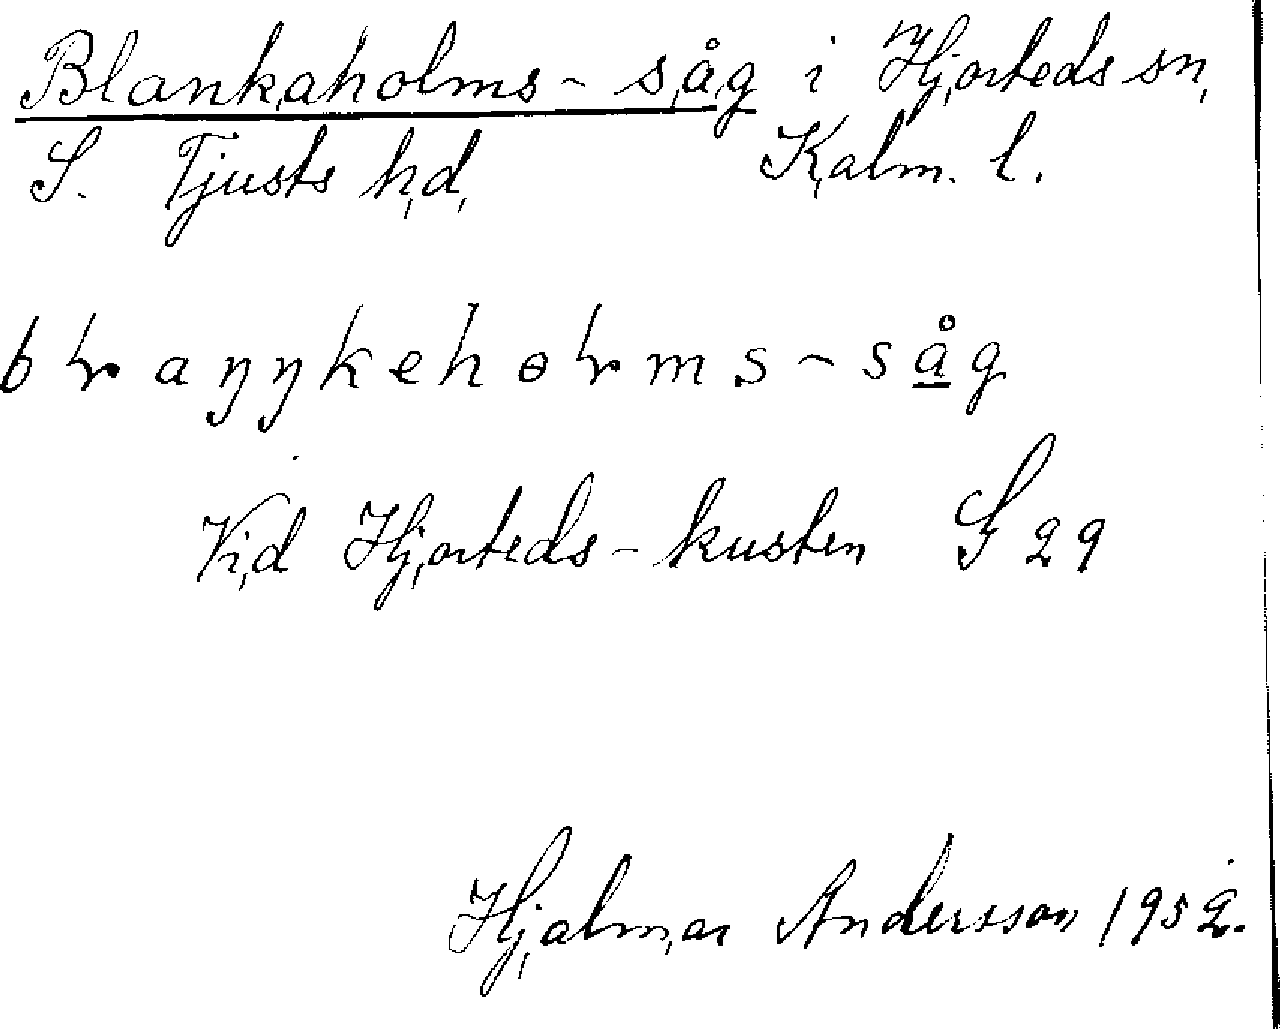 Blankaholms-såg i Hjorteds sn,
S. Tjusts hd, Kalm. l.
bɬaŋŋkehoɬms-såg
Vid Hjorteds-kusten S 29
Hjalmar Andersson 1952.